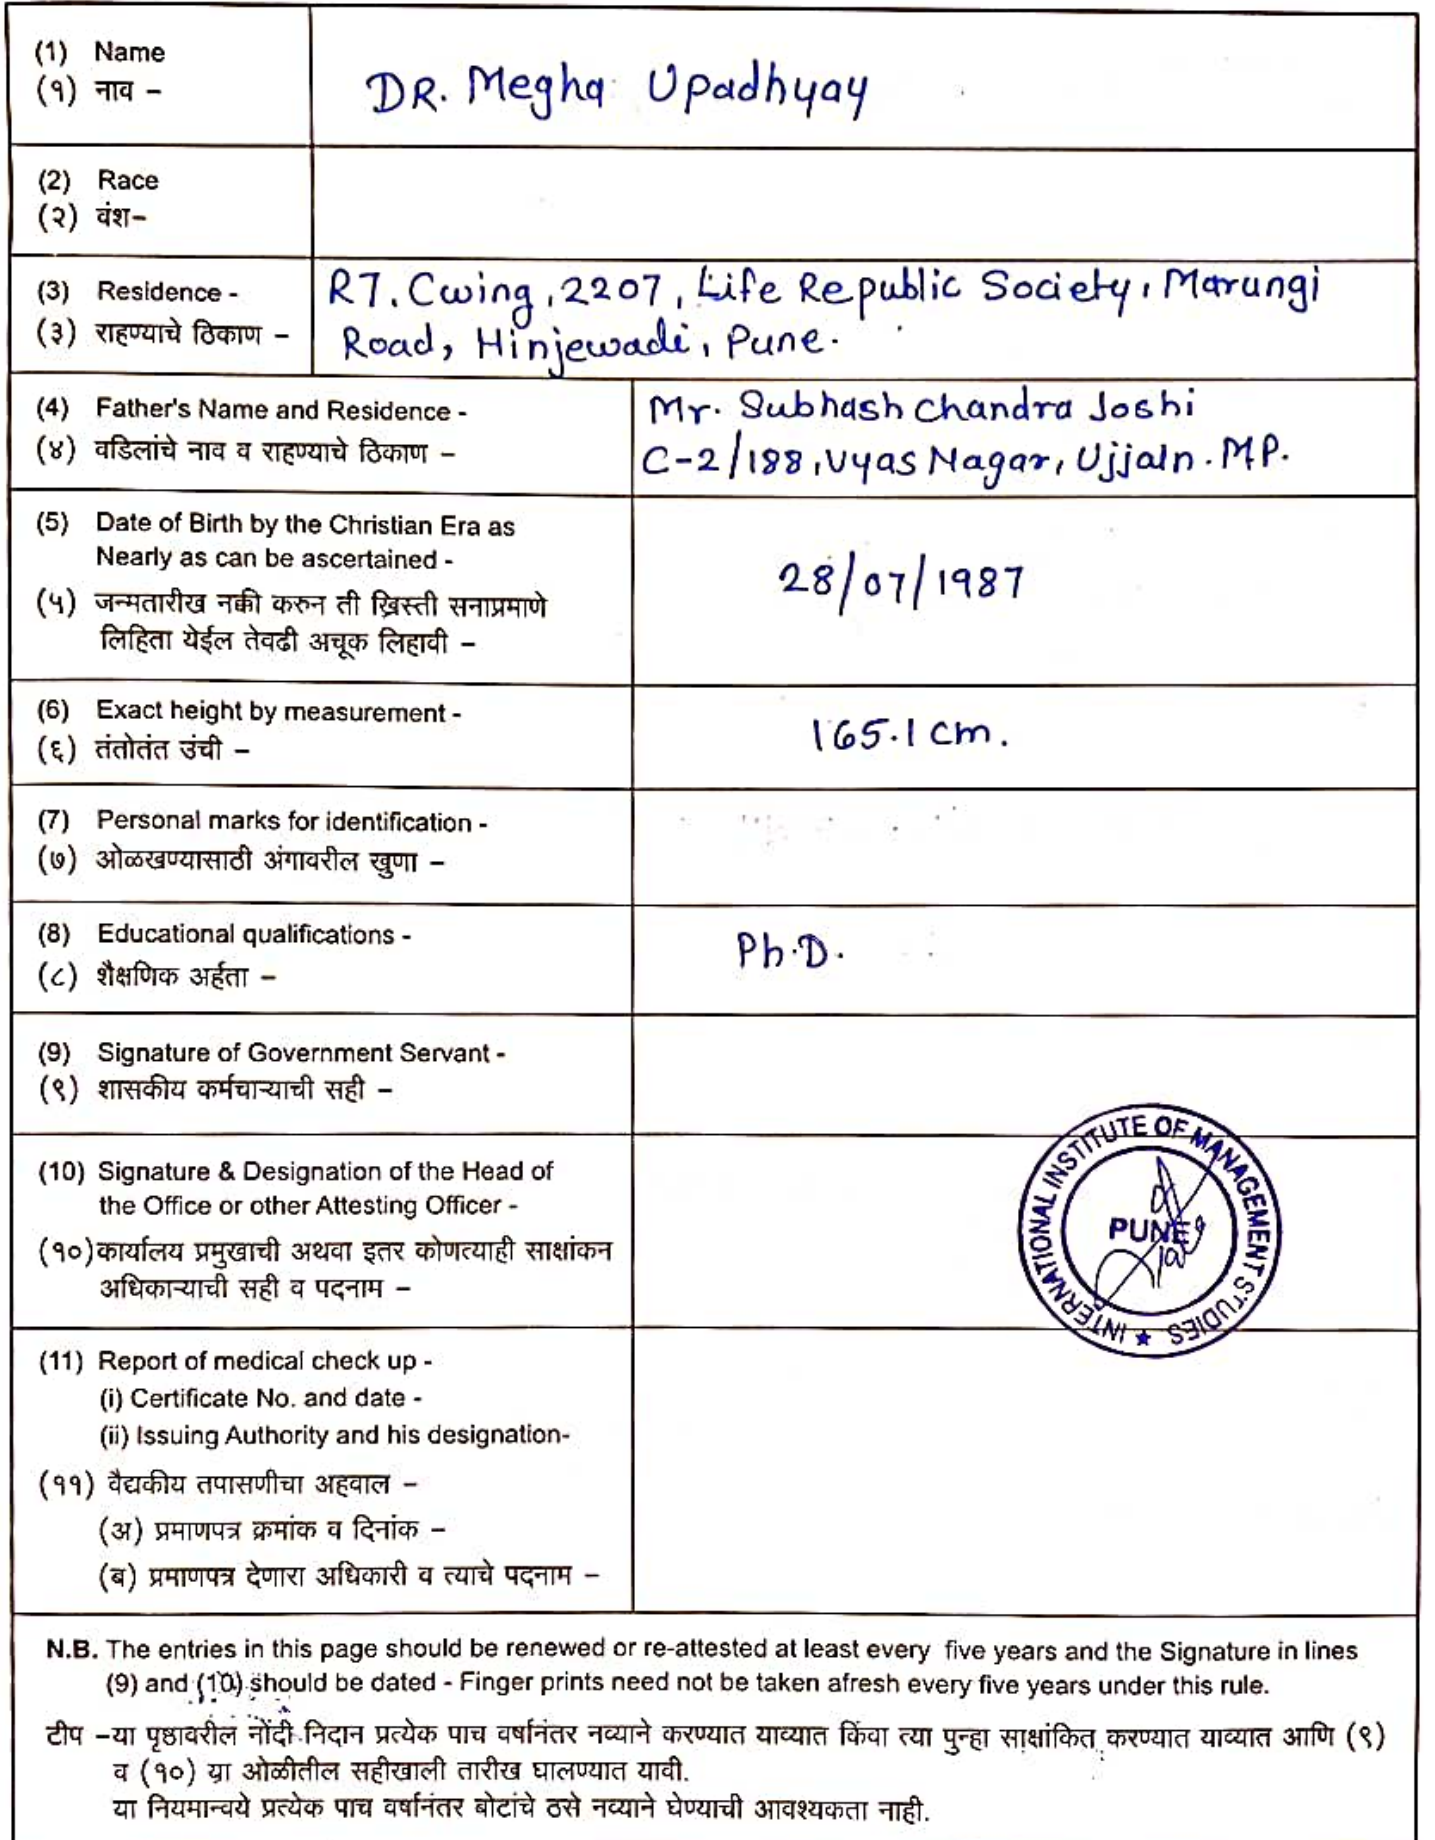 (1) Name
(१) नाव –
DR. Megha Upadhyay
(2) Race
(२) वंश–
(3) Residence -
(३) राहण्याचे ठिकाण –
R7. Cwing, 2207, Life Republic Society, Marungi
Road, Hinjewadi, Pune.
(4) Father's Name and Residence -
(४) वडिलांचे नाव व राहण्याचे ठिकाण –
Mr. Subhash Chandra Joshi
C-2/188, Vyas Nagar, Ujjain. M.P.
(5) Date of Birth by the Christian Era as
Nearly as can be ascertained -
(५) जन्मतारीख नक्की करुन ती ख्रिस्ती सनाप्रमाणे
लिहिता येईल तेवढी अचूक लिहावी –
28/07/1987
(6) Exact height by measurement -
(६) तंतोतंत उंची –
165.1 cm.
(7) Personal marks for identification -
(७) ओळखण्यासाठी अंगावरील खुणा –
(8) Educational qualifications -
(८) शैक्षणिक अर्हता –
Ph.D.
(9) Signature of Government Servant -
(९) शासकीय कर्मचाऱ्याची सही –
(10) Signature & Designation of the Head of
the Office or other Attesting Officer -
(१०) कार्यालय प्रमुखाची अथवा इतर कोणत्याही साक्षांकन
अधिकाऱ्याची सही व पदनाम –
INTERNATIONAL INSTITUTE OF MANAGEMENT STUDIES ★
PUNE
(11) Report of medical check up -
(i) Certificate No. and date -
(ii) Issuing Authority and his designation-
(११) वैद्यकीय तपासणीचा अहवाल –
(अ) प्रमाणपत्र क्रमांक व दिनांक –
(ब) प्रमाणपत्र देणारा अधिकारी व त्याचे पदनाम –
N.B. The entries in this page should be renewed or re-attested at least every five years and the Signature in lines
(9) and (10) should be dated - Finger prints need not be taken afresh every five years under this rule.
टीप –या पृष्ठावरील नोंदी निदान प्रत्येक पाच वर्षानंतर नव्याने करण्यात याव्यात किंवा त्या पुन्हा साक्षांकित करण्यात याव्यात आणि (९)
व (१०) या ओळीतील सहीखाली तारीख घालण्यात यावी.
या नियमान्वये प्रत्येक पाच वर्षानंतर बोटांचे ठसे नव्याने घेण्याची आवश्यकता नाही.